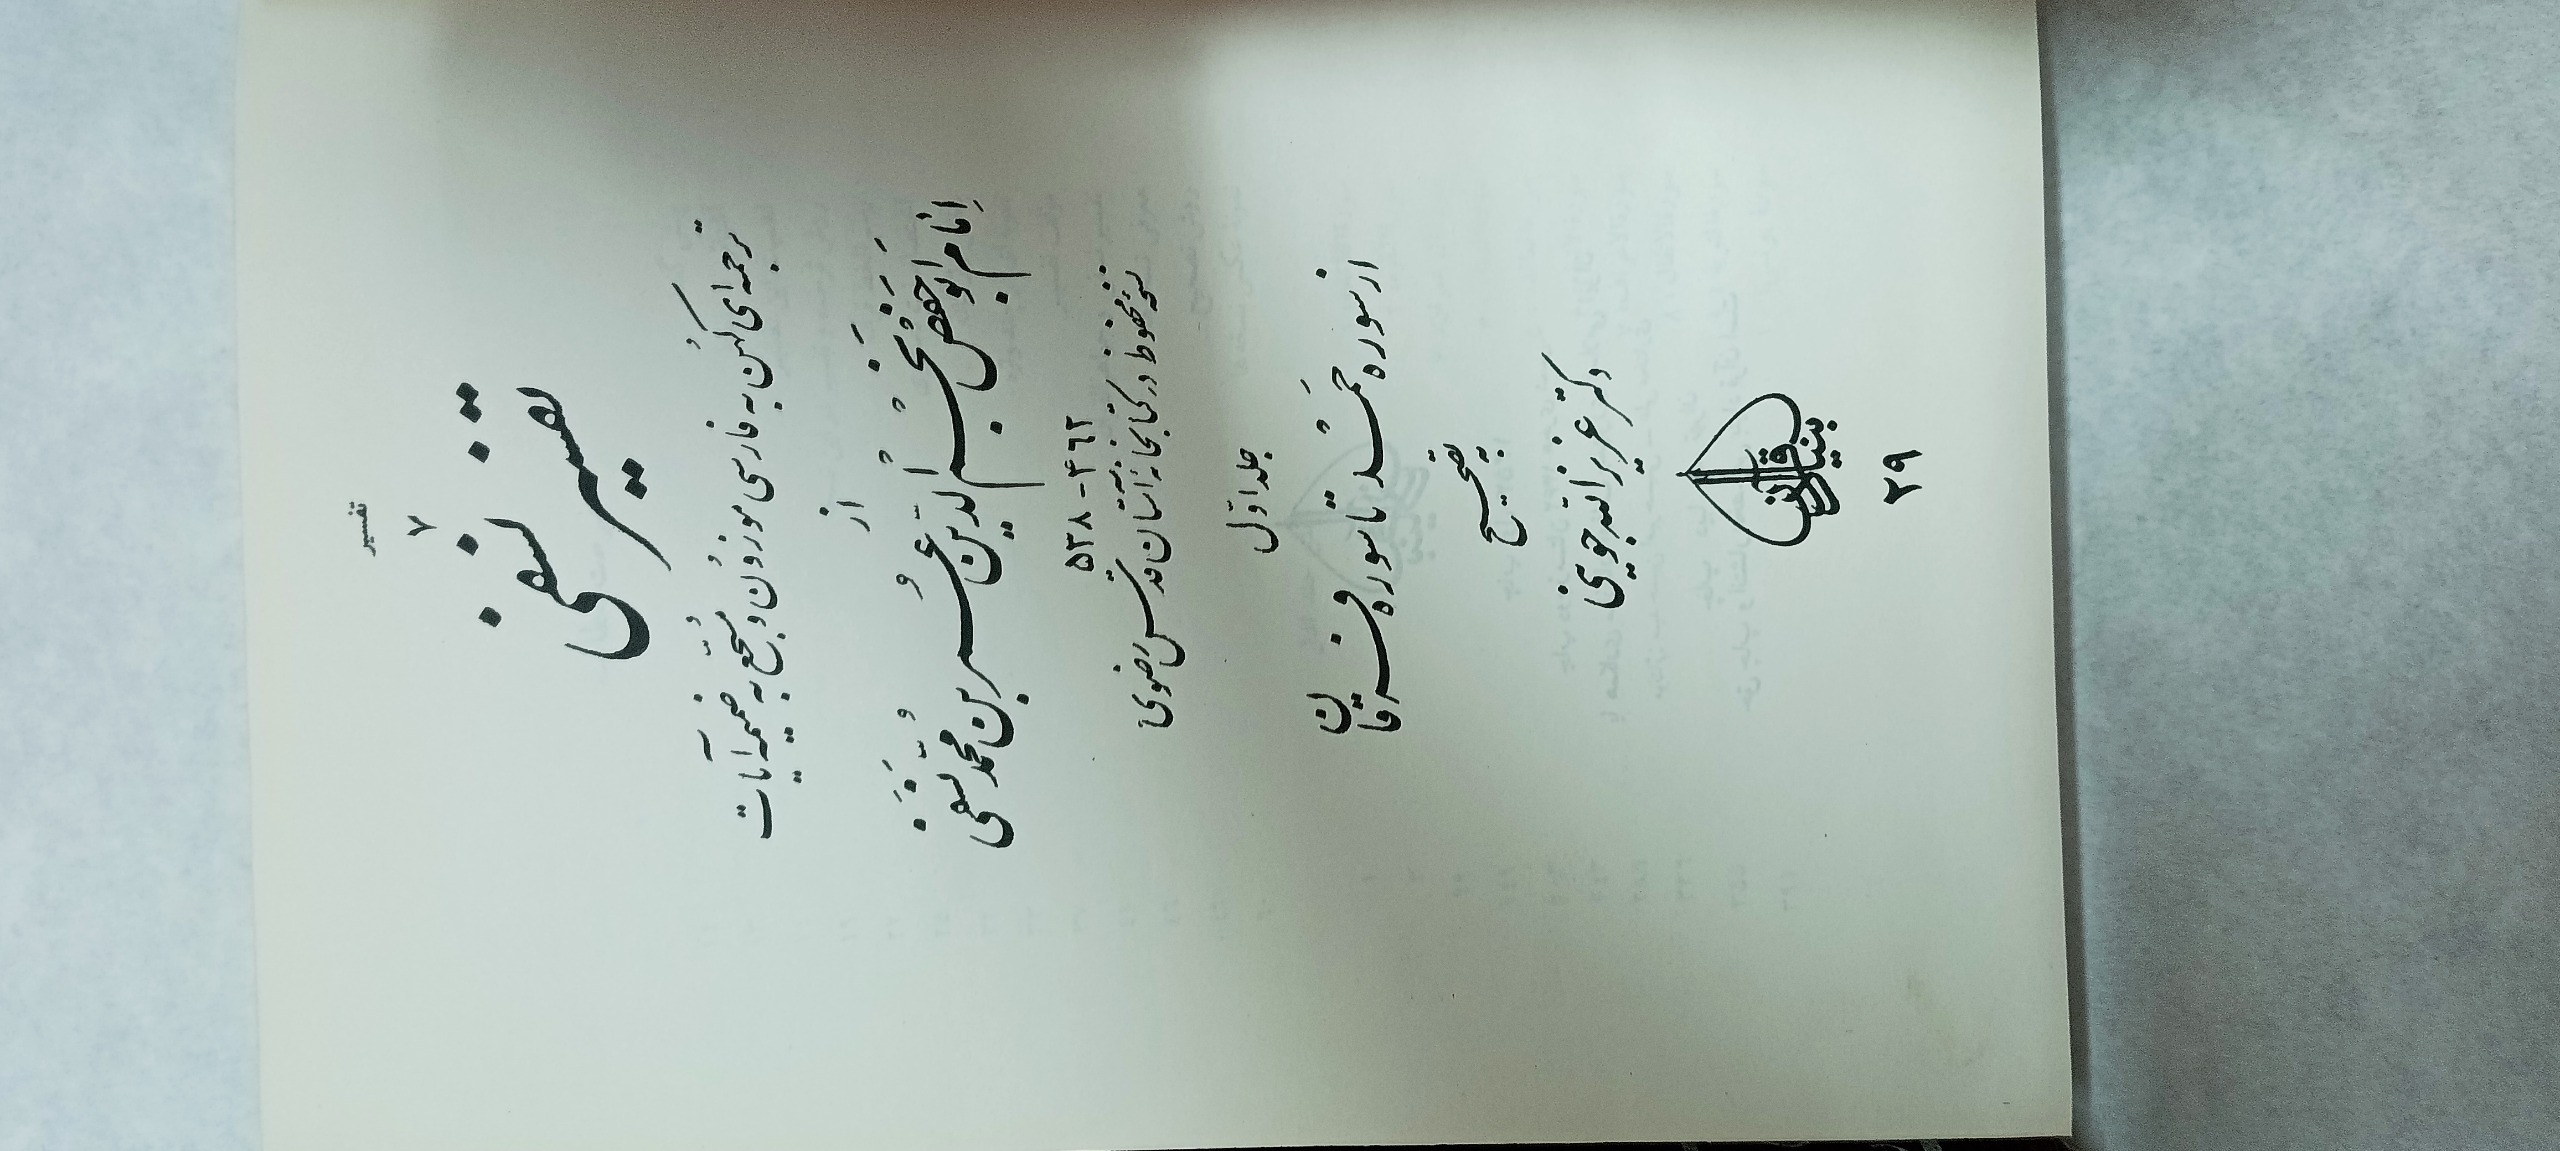 تفسیر
۷
تفسیر نسفی
ترجمه‌ای کُهن به فارسی موزُون و مُسَجّع به ضمیمه آیات
از
اِمام ابوحَفص نَجْمُ الدّین عُمَر بن محمّد نَسَفی
۴۶۲-۵۳۸
نسخهٔ محفوظ در کتابخانهٔ آستان قدس رضوی
جلد اوّل
از سوره حَمْد تا سوره فرقان
به تصحیح
دکتر عزیزالله جوینی
بنیاد قرآن
۲۹